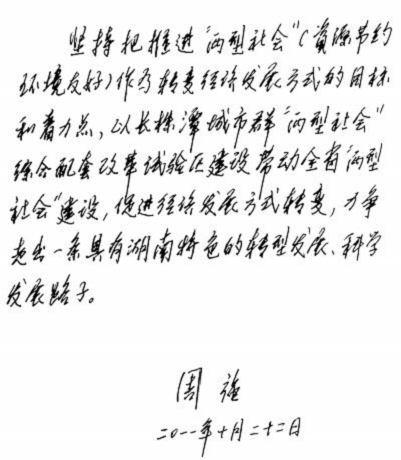 坚持把推进“两型社会”（资源节约
环境友好）作为转变经济发展方式的目标
和着力点，以长株潭城市群“两型社会”
综合配套改革试验区建设带动全省“两型
社会”建设，促进经济发展方式转变，力争
走出一条具有湖南特色的转型发展、科学
发展路子。
周强
二〇一一年十月二十二日